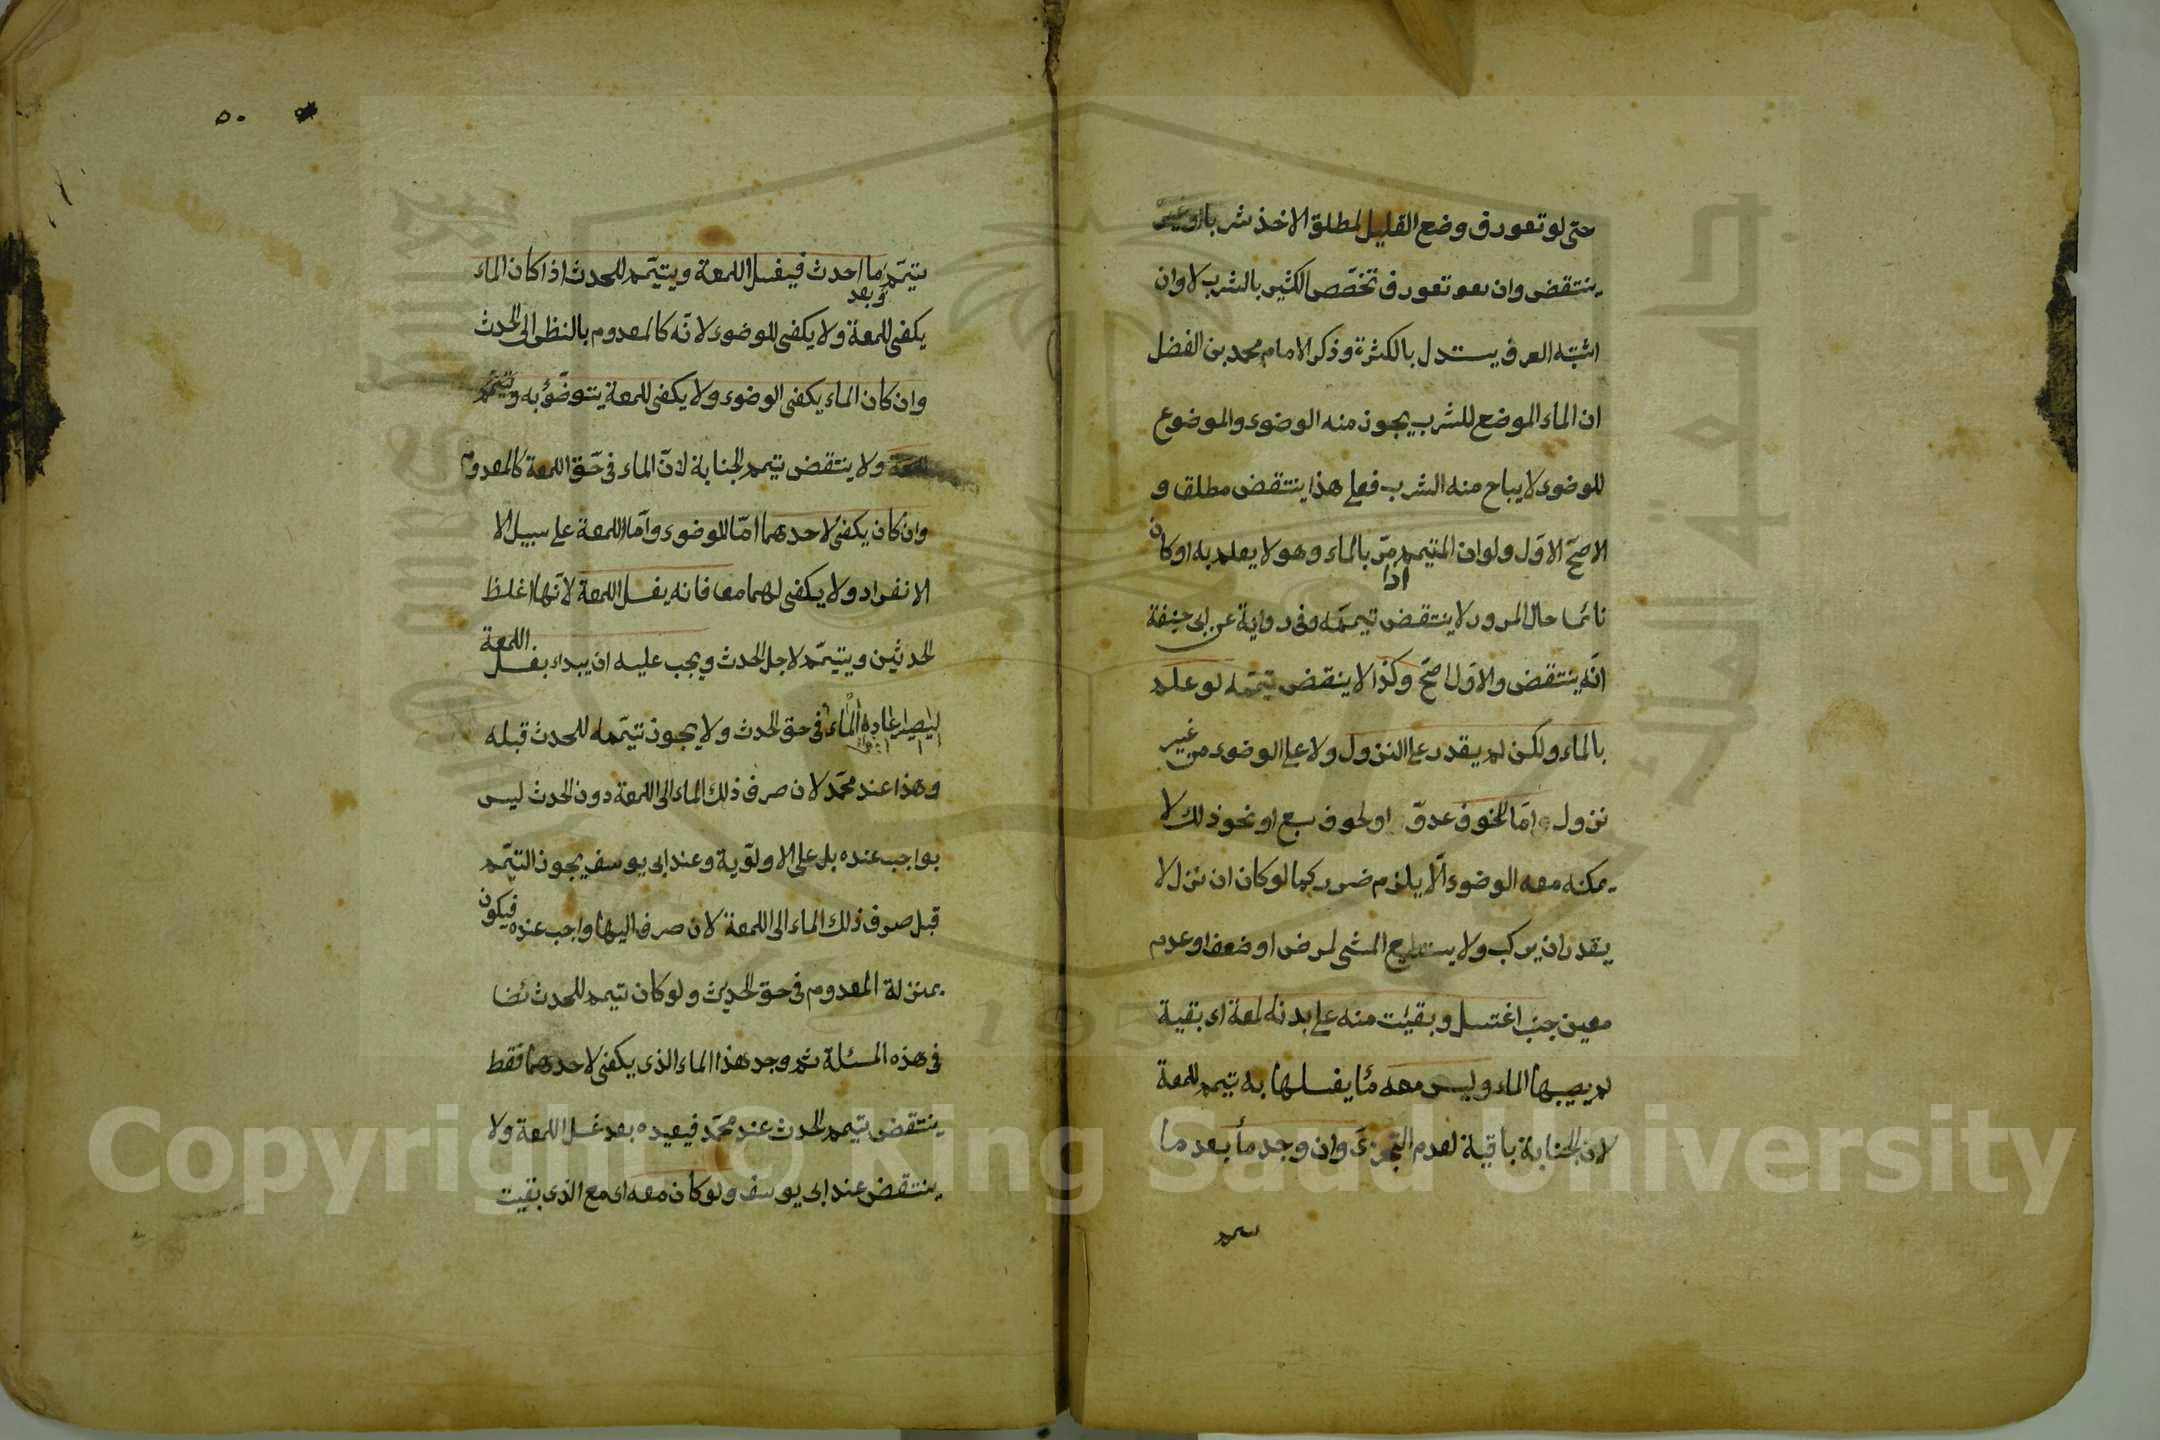 حتى لو تعورف وضع القليل لمطلق الاخذ شربا او غيره
ينتقض وان تعورف تخصص الكثير بالشرب لا وان
اشتبه العرف يستدل بالكثرة وذكر الامام محمد بن الفضل
ان الماء الموضع للشرب يجوز منه الوضوء والموضوع
للوضوء لا يباح منه الشرب فعلى هذا ينتقض مطلقا و
الاصح الاول ولو ان المتيمم مر بالماء وهو لا يعلم به او كان
نائما حال المرور لا ينتقض تيممه وفى رواية عن ابى حنيفة
انه ينتقض والاول اصح وكذا لا ينقض تيممه لو علم
بالماء ولكن لم يقدر على النزول ولا على الوضوء من غير
نزول اما لخوف عدو او لخوف سبع او نحو ذلك لا
يمكنه معه الوضوء الا يلزم ضرر كما لو كان ان نزل لا
يقدر ان يركب ولا يستطيع المشى لمرض او ضعف او عدم
معين جنب اغتسل وبقيت منه على بدنه لمعة اى بقية
لم يصبها الماء وليس معه ما يغسلها به تيمم للمعة
لان الجنابة باقية لعدم التجزى وان وجد ماء بعد ما
تيمم
٥٠
يتيمم وبعد ما احدث فيغسل اللمعة ويتيمم للحدث اذا كان الماء
يكفى للمعة ولا يكفى للوضوء لانه كالمعدوم بالنظر الى الحدث
وان كان الماء يكفى الوضوء ولا يكفى للمعة يتوضؤ به ويتيمم
للمعة ولا ينتقض تيمم الجنابة لان الماء فى حق اللمعة كالمعدوم
وان كان يكفى لاحدهما اما للوضوء واما اللمعة على سبيل الا
الانفراد ولا يكفى لهما معا فانه يغسل اللمعة لانها اغلظ
الحدثين ويتيمم لاجل الحدث ويجب عليه ان يبداء بغسل اللمعة
ليصير عادم الماء فى حق الحدث ولا يجوز تيممه للحدث قبله
وهذا عند محمد لان صرف ذلك الماء الى اللمعة دون الحدث ليس
بواجب عنده بل على الاولوية وعند ابى يوسف يجوز التيمم
قبل صرف ذلك الماء الى اللمعة لان صرف اليها واجب عنده فيكون
بمنزلة المعدوم فى حق الحدث ولو كان تيمم للحدث ايضا
فى هذه المسئلة ثم وجد هذا الماء الذى يكفى لاحدهما فقط
ينتقض تيمم الحدث عند محمد فيعيده بعد غسل اللمعة ولا
ينتقض عند ابى يوسف ولو كان معه اى مع الذى بقيت
Copyright © King Saud University